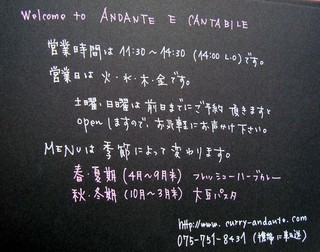 Welcome to ANDANTE E CANTABILE
営業時間は 11:30〜14:30 (14:00 L.O)です。
営業日は 火・水・木・金です。
土曜、日曜は 前日までにご予約 頂きますと
openしますので、お気軽にお声かけ下さい。
MENUは 季節によって変わります。
春・夏期 (4月〜9月末) フレッシュハーブカレー
秋・冬期 (10月〜3月末) 大豆パスタ
http://www.curry-andante.com
075-751-8431 (携帯に転送)